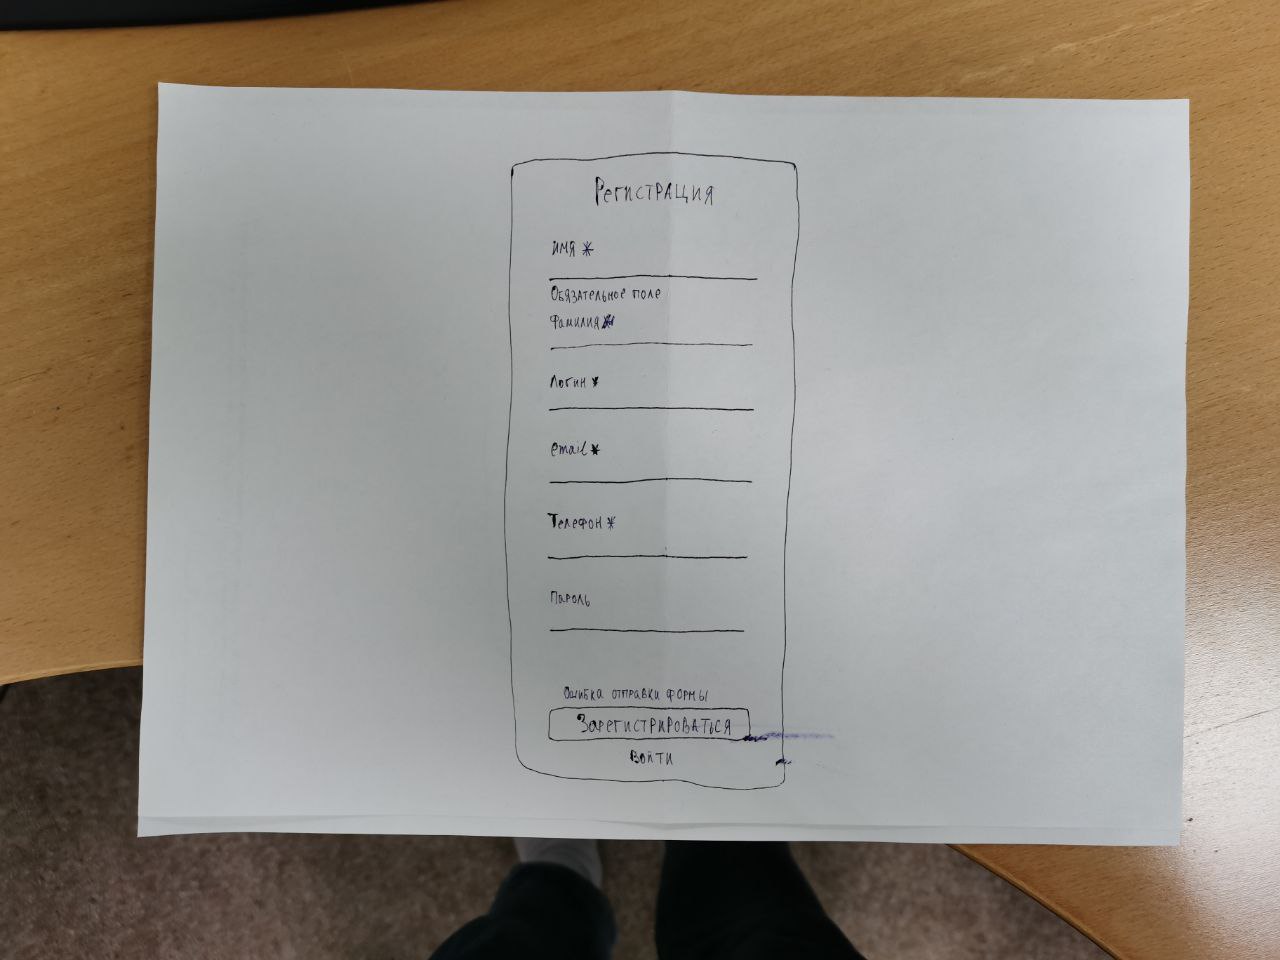 Регистрация
имя *
Обязательное поле
Фамилия *
Логин *
email *
Телефон *
Пароль
Ошибка отправки формы
Зарегистрироваться
Войти